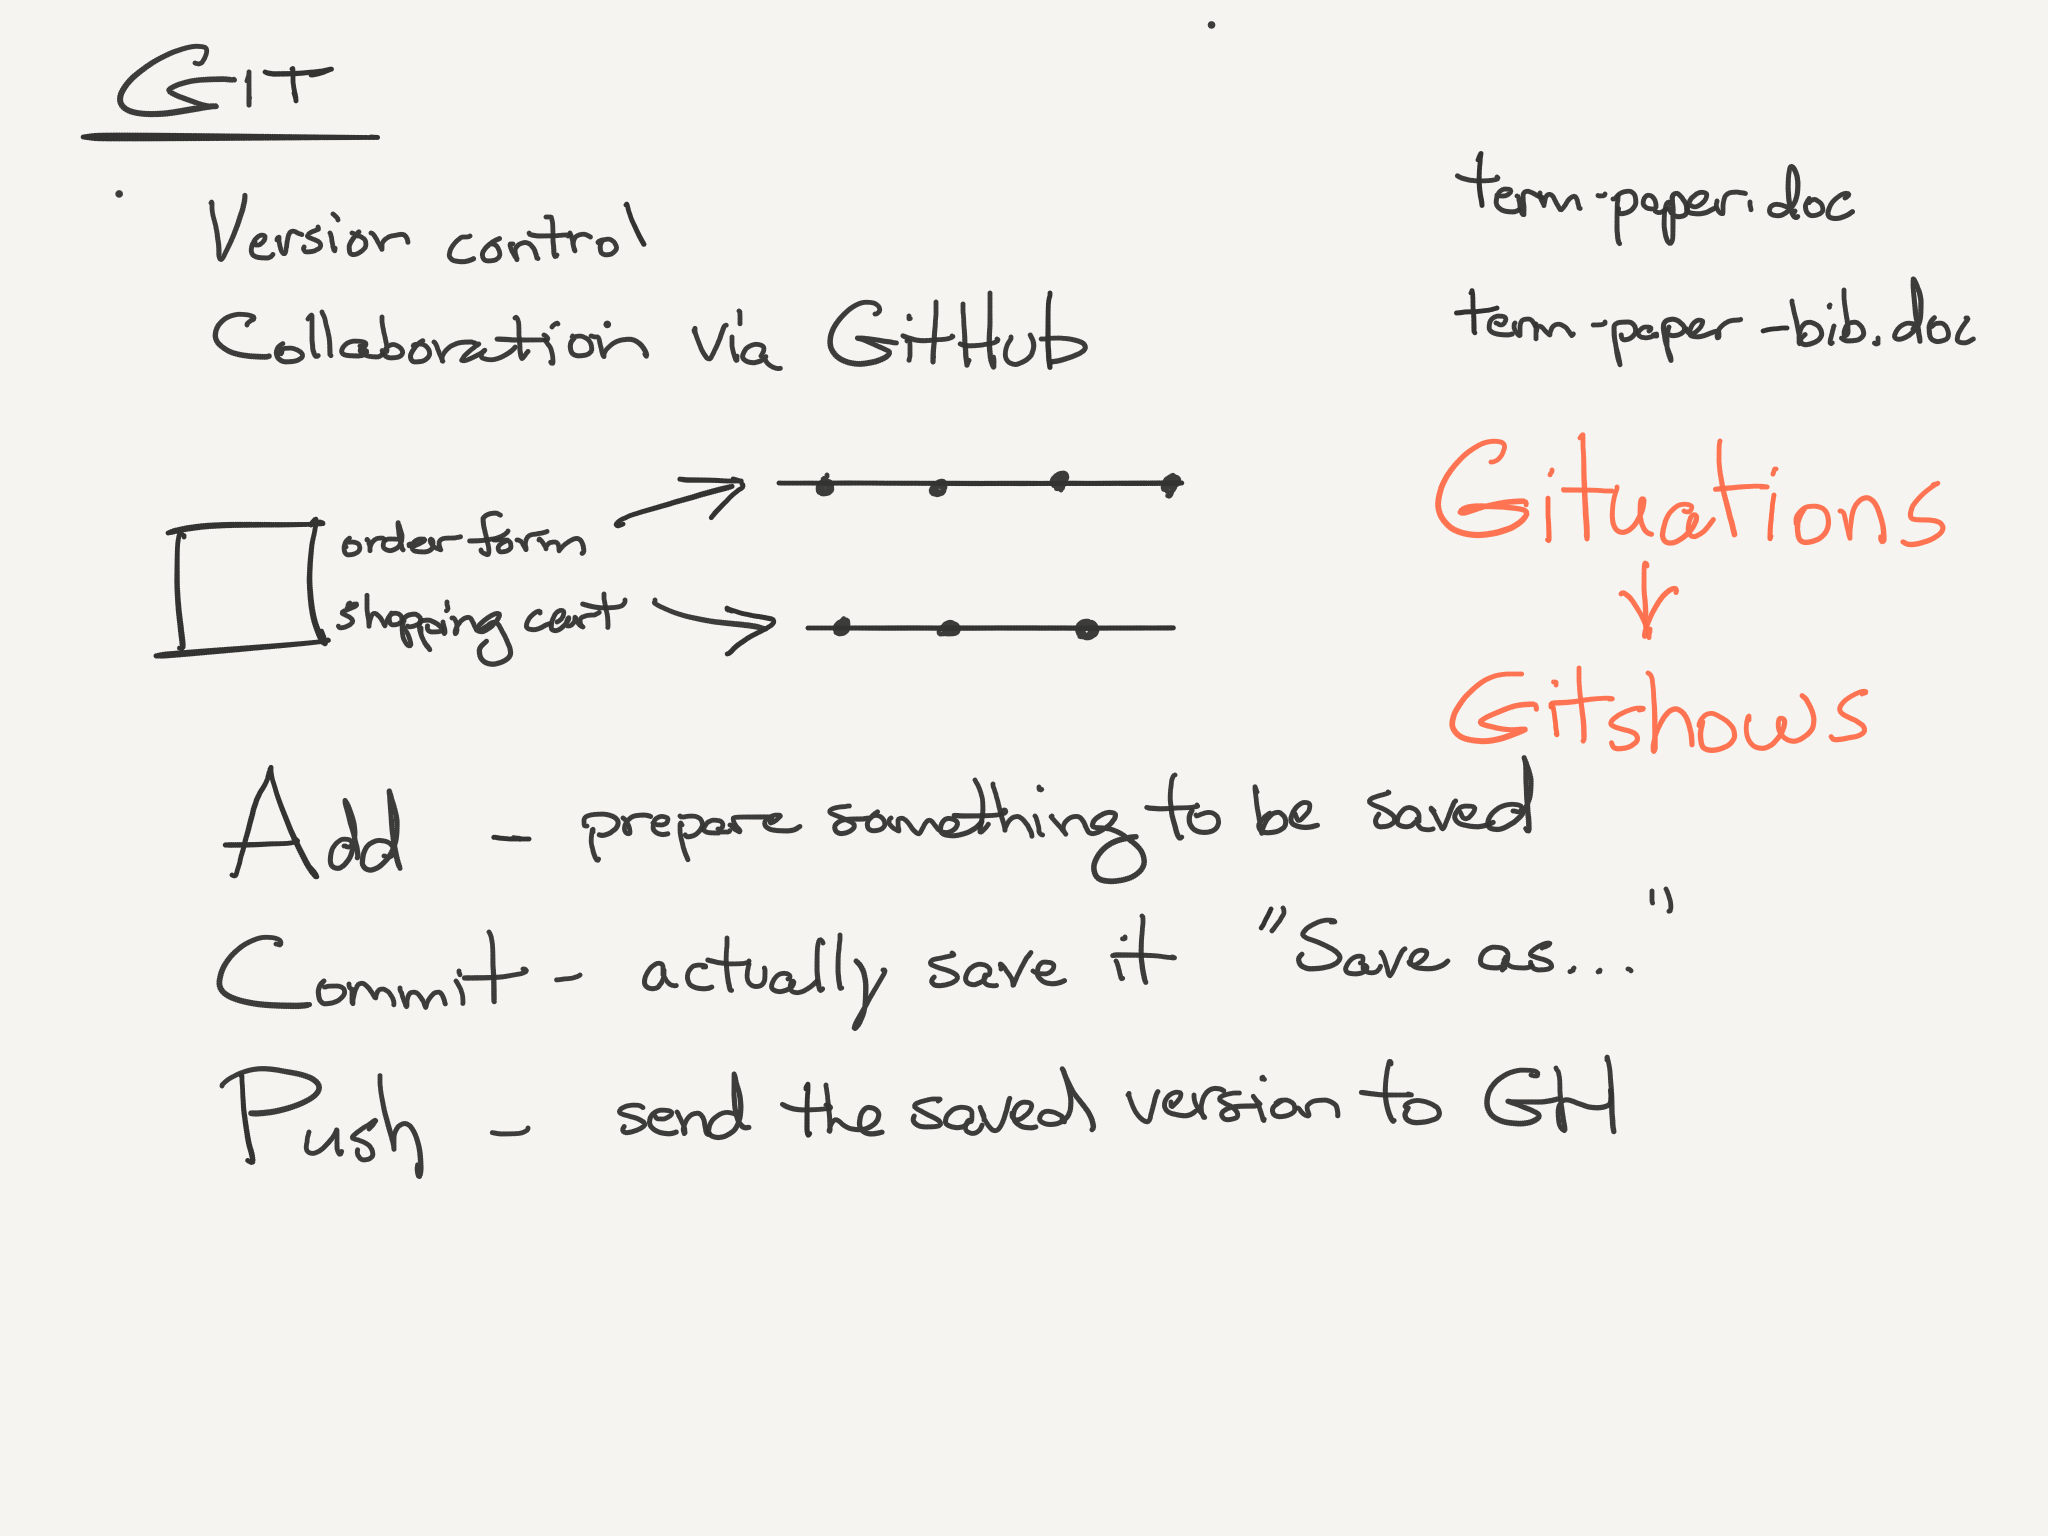 GIT
Version control
Collaboration via GitHub
term-paper.doc
term-paper-bib.doc
order form
shopping cart
Gituations
Gitshows
Add - prepare something to be saved
Commit - actually save it "Save as..."
Push - send the saved version to GH